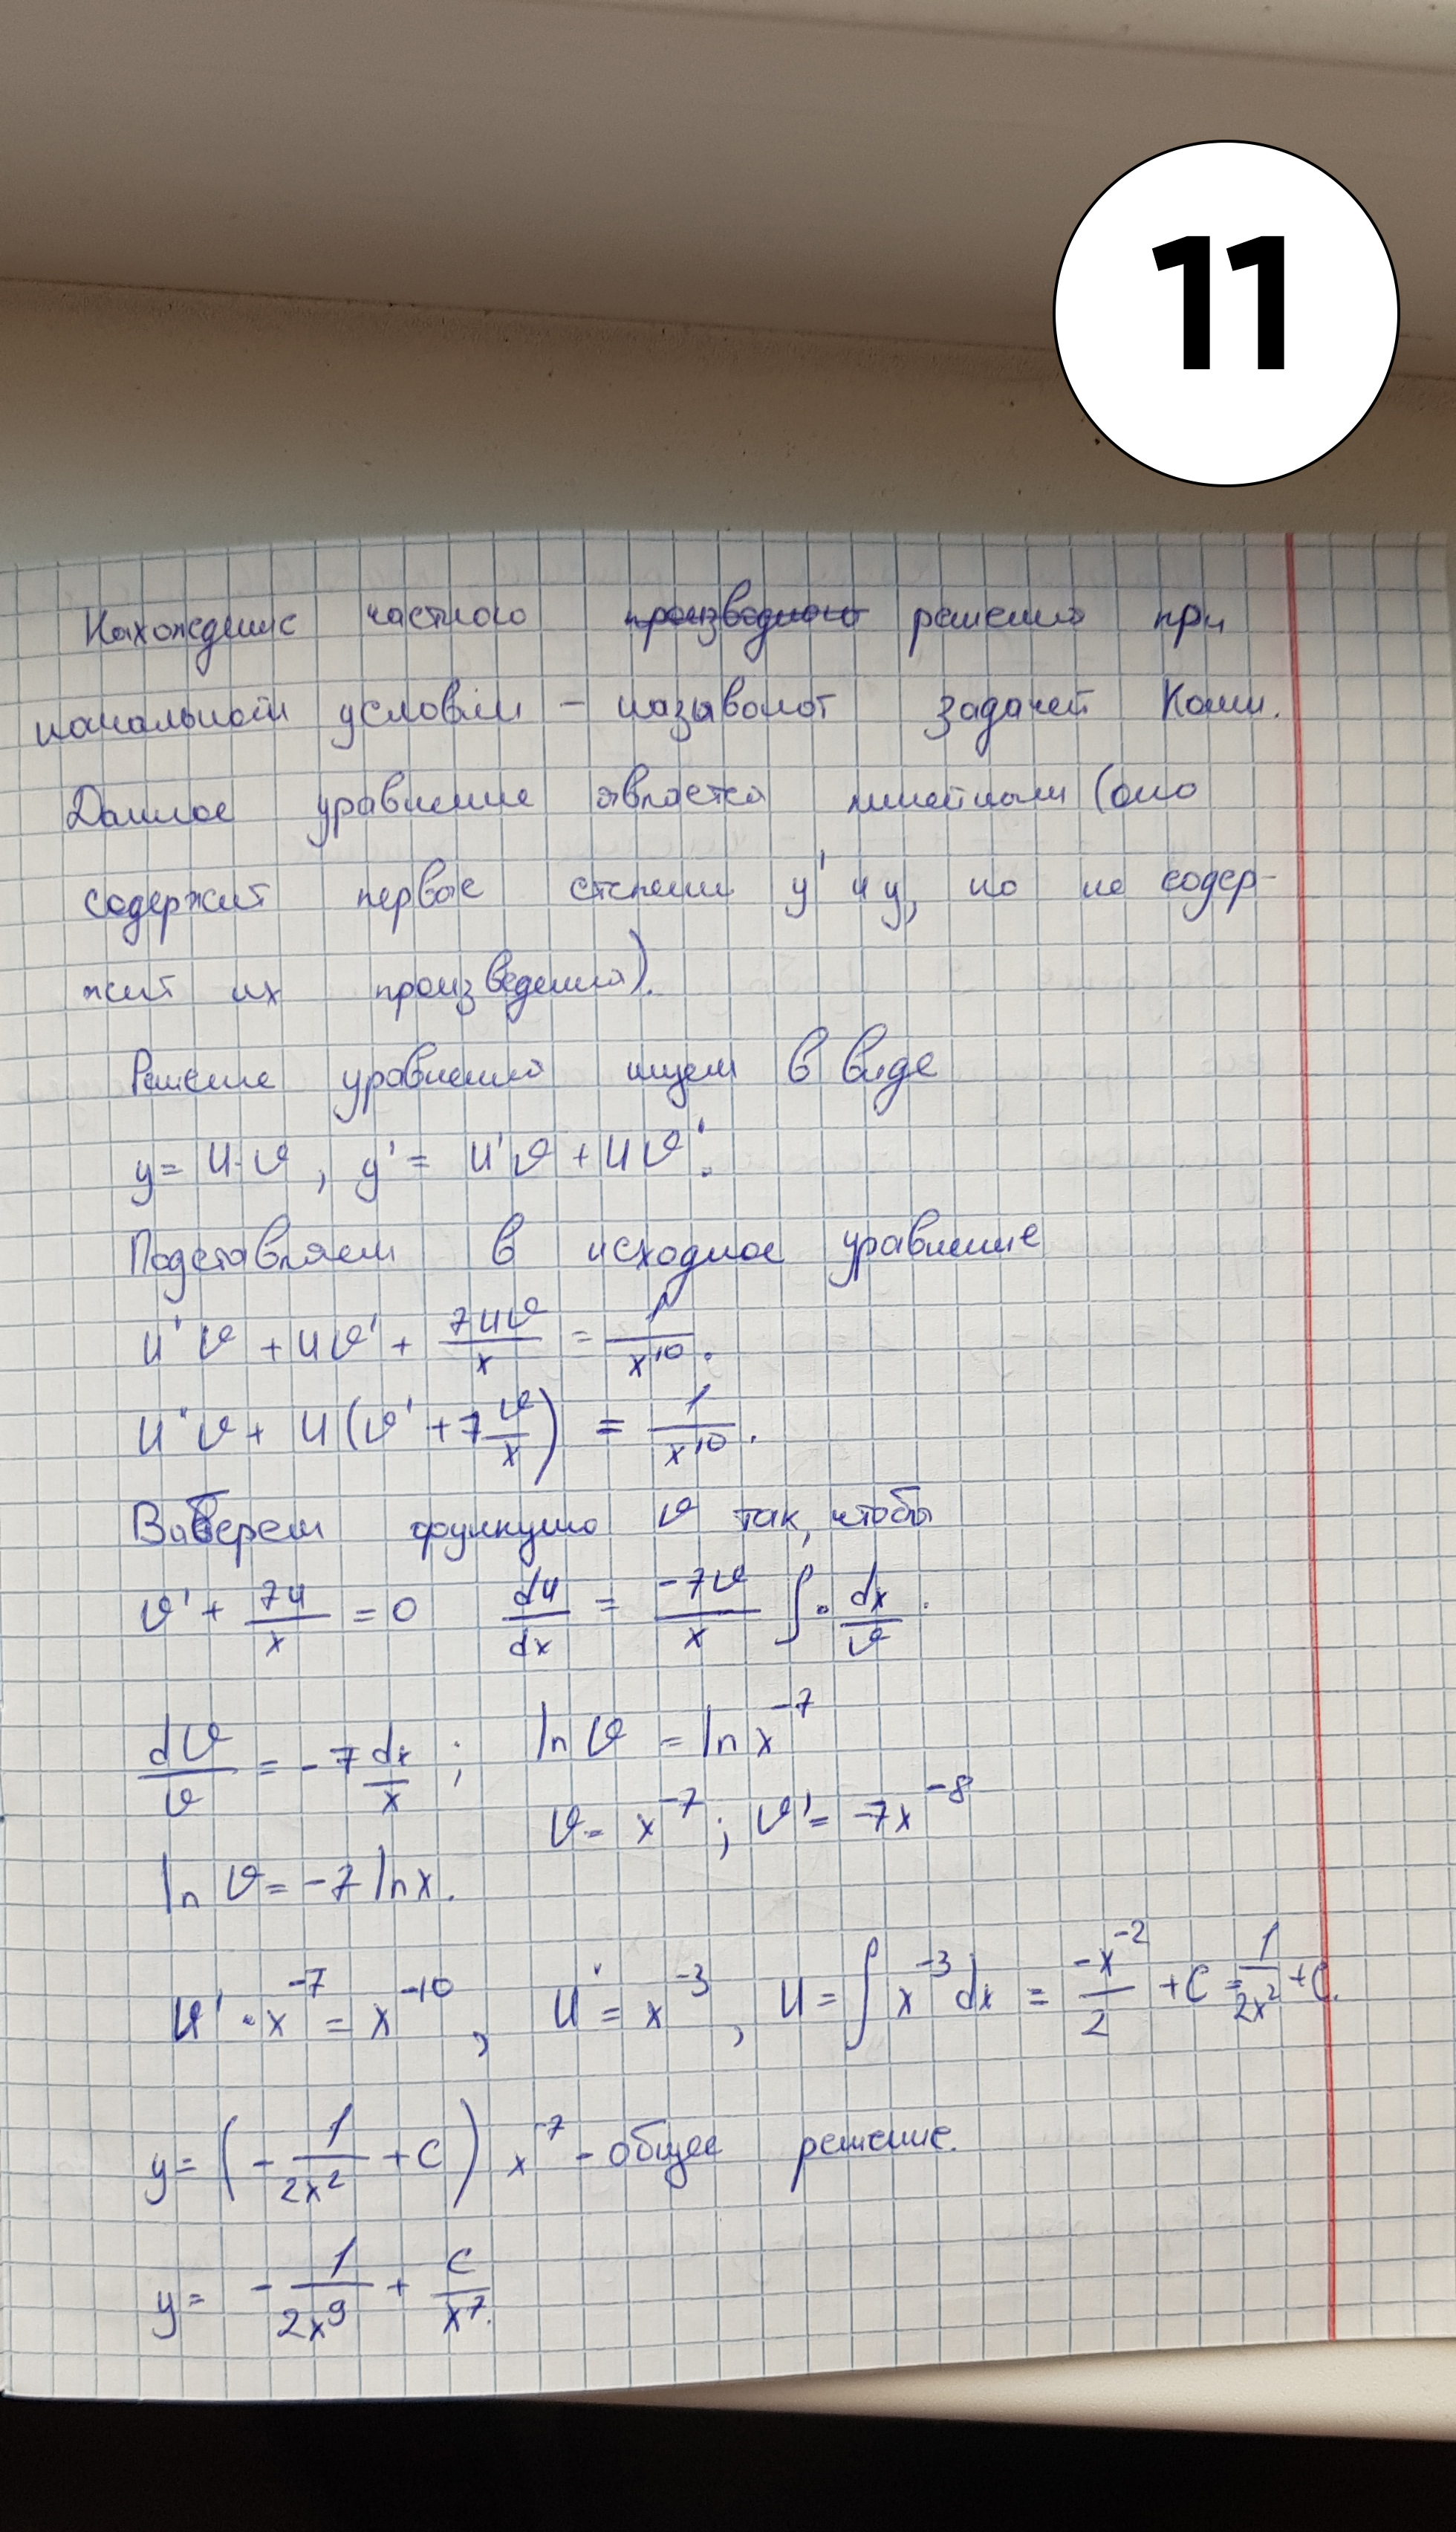 11
Нахождение частного производного решения при
начальном условии – называют задачей Коши.
Данное уравнение является линейным (оно
содержит первые степени y' и y, но не содер-
жит их произведения).
Решение уравнения ищем в виде
y = u·v, y' = u'v + uv'.
Подставляем в исходное уравнение
u'v + uv' + 7uv/x = 1/x^10.
u'v + u(v' + 7 v/x) = 1/x^10.
Выберем функцию v так, чтобы
v' + 7u/x = 0 du/dx = -7v/x ∫· dx/v.
dv/v = -7 dx/x; ln v = ln x^-7
v = x^-7; v' = -7x^-8
ln v = -7 ln x.
u'·x^-7 = x^-10, u' = x^-3, u = ∫x^-3 dx = -x^-2/2 + C = 1/2x^2 + C.
y = (-1/2x^2 + C) x^-7 - общее решение.
y = -1/2x^9 + C/x^7.